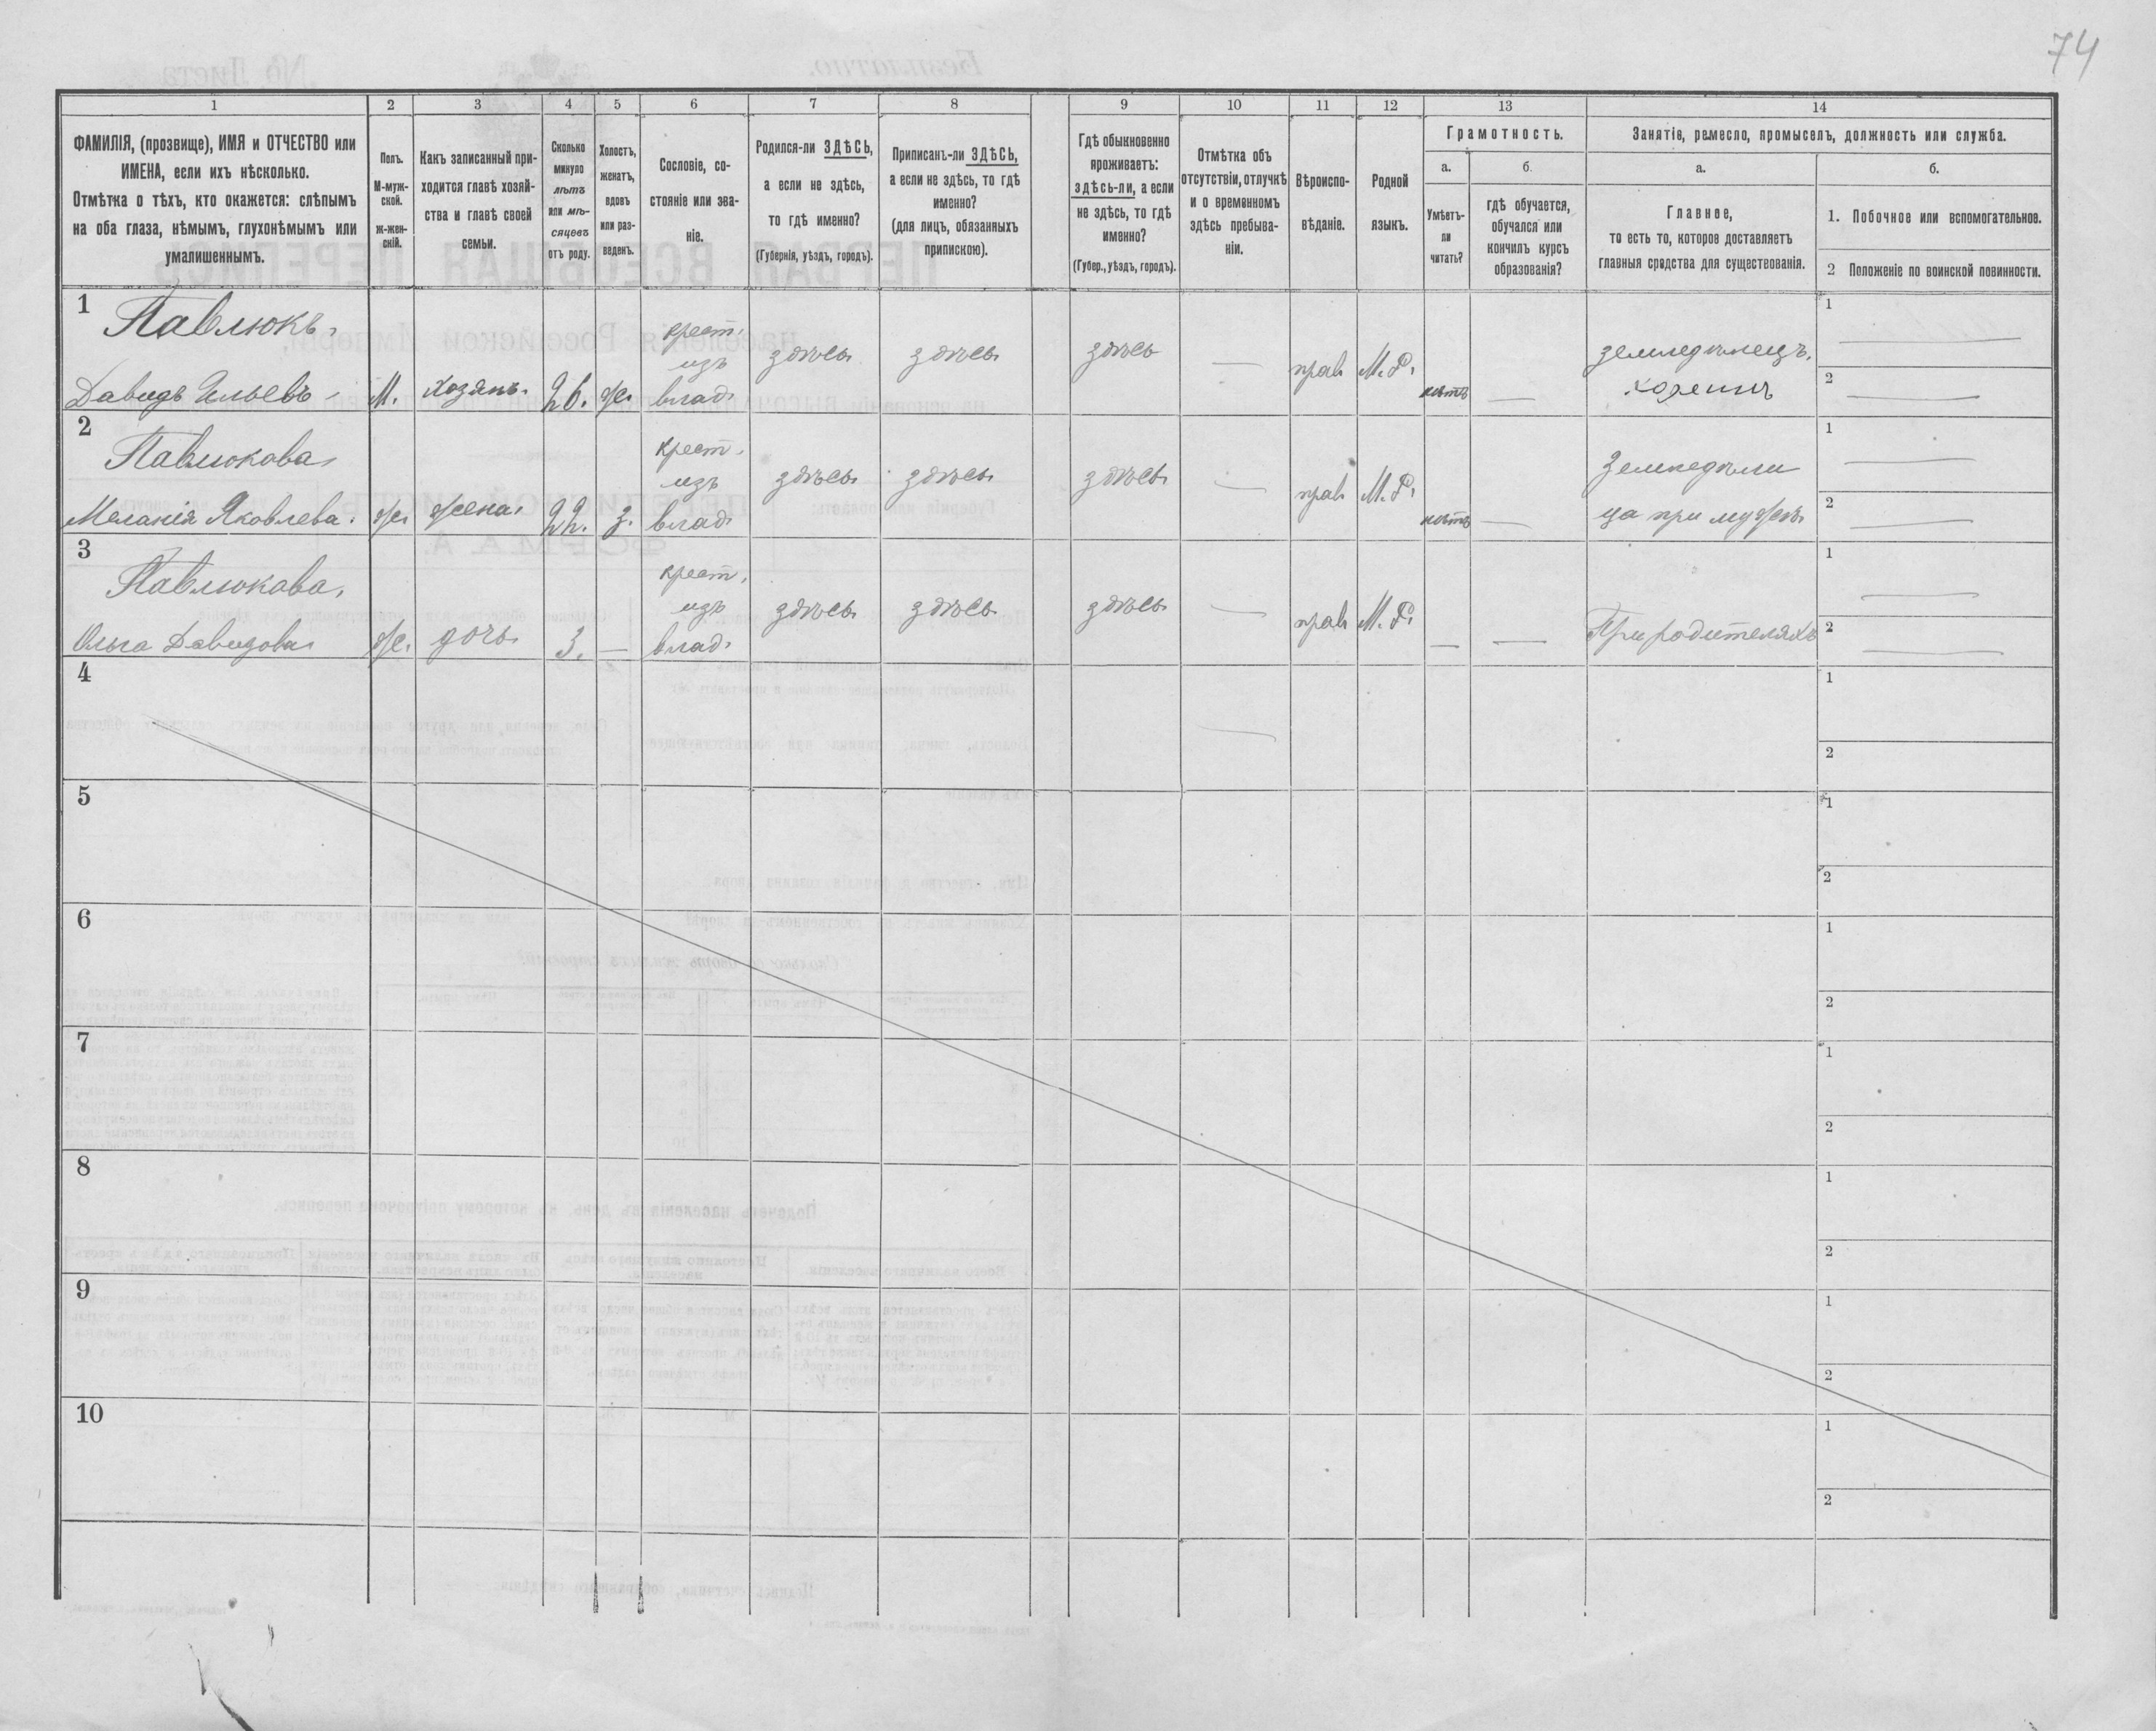 74
1 2 3 4 5 6 7 8 9 10 11 12 13 14
ФАМИЛІЯ, (прозвище), ИМЯ и ОТЧЕСТВО или
ИМЕНА, если ихъ нѣсколько.
Отмѣтка о тѣхъ, кто окажется: слѣпымъ
на оба глаза, нѣмымъ, глухонѣмымъ или
умалишеннымъ.
Полъ.
М-муж-
ской.
ж-жен-
скій.
Какъ записанный при-
ходится главѣ хозяй-
ства и главѣ своей
семьи.
Сколько
минуло
лѣтъ
или мѣ-
сяцевъ
отъ роду.
Холостъ,
женатъ,
вдовъ
или раз-
веденъ.
Сословіе, со-
стояніе или зва-
ніе.
Родился-ли ЗДѢСЬ,
а если не здѣсь,
то гдѣ именно?
(Губернія, уѣздъ, городъ).
Приписанъ-ли ЗДѢСЬ,
а если не здѣсь, то гдѣ
именно?
(для лицъ, обязанныхъ
припискою).
Гдѣ обыкновенно
проживаетъ:
здѣсь-ли, а если
не здѣсь, то гдѣ
именно?
(Губер., уѣздъ, городъ).
Отмѣтка объ
отсутствіи, отлучкѣ
и о временномъ
здѣсь пребыва-
ніи.
Вѣроиспо-
вѣданіе.
Родной
языкъ.
Грамотность.
а.
Умѣетъ-
ли
читать?
б.
гдѣ обучается,
обучался или
кончилъ курсъ
образованія?
Занятіе, ремесло, промыселъ, должность или служба.
а.
Главное,
то есть то, которое доставляетъ
главныя средства для существованія.
б.
1. Побочное или вспомогательное.
2 Положеніе по воинской повинности.
1
Павлюкъ
Давидъ Ильевъ
М.
хозяинъ.
26.
ж.
крест.
изъ
влад.
здѣсь
здѣсь
здѣсь
—
прав
М. Р.
нѣтъ
—
земледѣлецъ,
хозяинъ
1 —
2 —
2
Павлюкова
Меланія Яковлева.
ж.
жена.
22.
з.
крест.
изъ
влад.
здѣсь
здѣсь
здѣсь
—
прав
М. Р.
нѣтъ
—
земледѣли
ца при мужѣ
1 —
2 —
3
Павлюкова,
Ольга Давидова
ж.
дочь
3.
—
крест.
изъ
влад.
здѣсь
здѣсь
здѣсь
—
прав
М. Р.
—
—
При родителяхъ
1 —
2 —
4
1
2
5
1
2
6
1
2
7
1
2
8
1
2
9
1
2
10
1
2